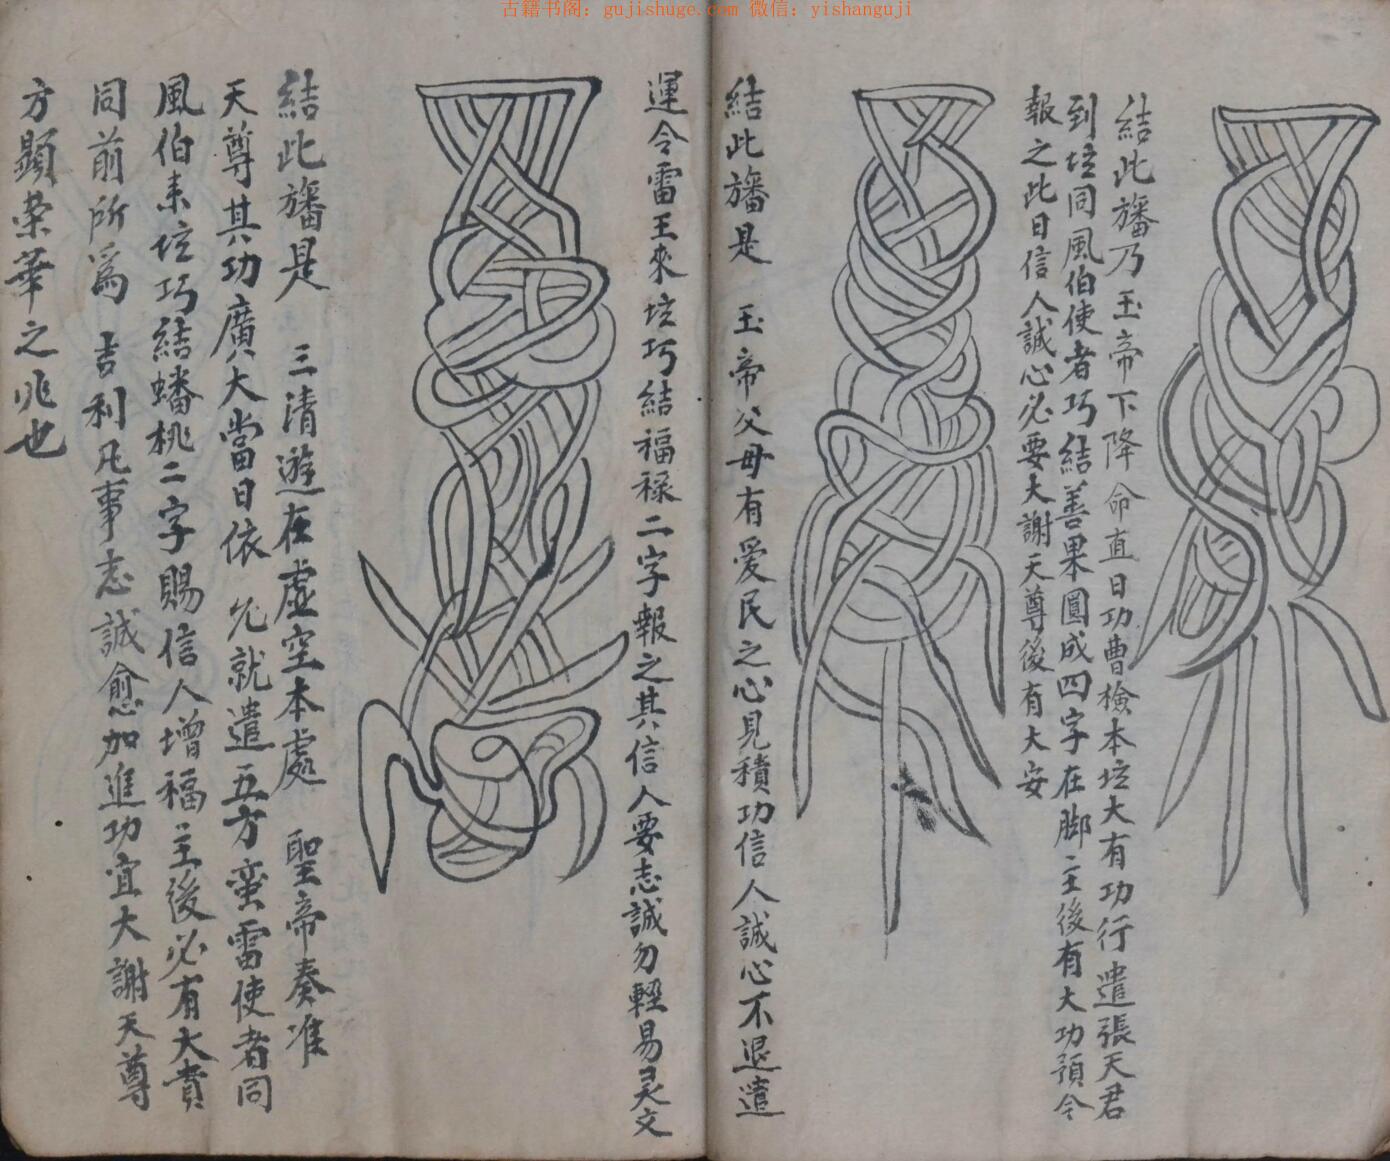 古籍书阁：gujishuge.com 微信：yishanguji
結此旛乃玉帝下降 命直日功曹檢本坛大有功行遣張天君
到坛同風伯使者巧結善果圓成四字在脚主後有大功預令
報之此日信人誠心必要大謝天尊後有大安
結此旛是 玉帝父母有爱民之心見積功信人誠心不退遣
運令雷王來坛巧結福禄二字報之其信人要志誠勿輕易灵文
結此旛是 三清遊在虚空本處 聖帝奏准
天尊其功廣大當日依允就遣五方蛮雷使者同
風伯來坛巧結蟠桃二字賜信人增福主後必有大貴
同前所爲 吉利凡事志誠愈加進功宜大謝天尊
方顯荣華之兆也